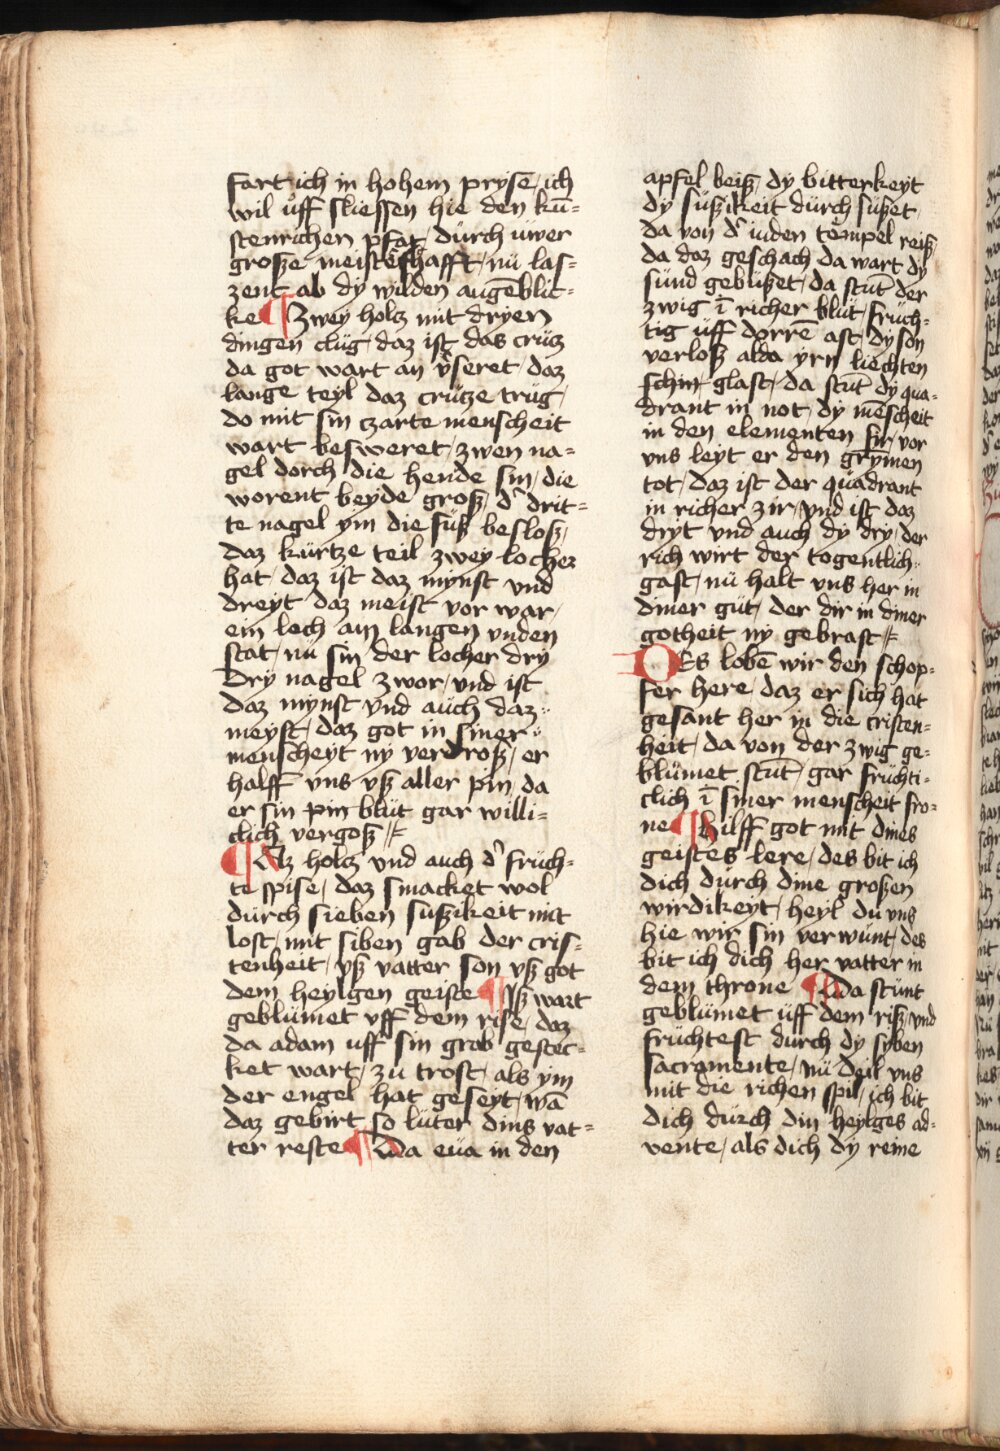 fart ich in hohem pryse / ich
wil uff sliessen hie den kū=
stenrichen pfat / durch uwer
große meisteschafft / nu las=
zent ab dy wilden augēblic=
ke ¶ Zwey holtz mit dryen
dingen clug / daz ist das crutz
da got wart an vseret / daz
lange teyl daz crutze trug /
do mit sin czarte menscheit
wart besweret / zwen na=
gel dorch die hende sin / die
worent beyde groß / d' drit=
te nagel ym die fuß besloß /
daz kurtze teil zwey locher
hat / daz ist daz mynst vnd
dreyt daz meist vor war /
ein loch am langen vnden
stat / nu sin der locher dry
Dry nagel zwor / vnd ist
daz mynst vnd auch daz
meyst / daz got in siner
menscheyt ny verdroß / er
halff vns vß aller pin / da
er sin pin blut gar willi=
clich vergoß //
¶ Alz holtz vnd auch d' fruch=
te spise / daz smacket wol
durch sieben sußikeit mit
lost / mit siben gab der cris=
tenheit / vß vatter son vß got
dem heylgen geiste ¶ Iß wart
geblumet vff dem rise / daz
da adam uff sin grab gestec=
ket wart / zu trost / als ym
der engel hat geseyt / wā
daz gebirt so luter dins vat=
ter reste ¶ Da eua in den
apfel beiß / dy bitterkeyt
dy sußikeit durch sußet
da von d' iuden tempel reiß
da daz geschach da wart dy
sund gebußet / da stūt der
zwig ī richer blut / fruch=
tig uff dorrē ast / dy son
verloß alda yrn liechten
schin glast / da stūt dy qua=
drant in not / dy mēscheit
in den elementen fir / vor
vns leyt er den grymen
tot / daz ist der quadrant
in richer zir / vnd ist daz
dryt vnd auch dy dry / der
rich wirt der togentlich
gast / nu halt vns her in
diner gut / der dir in diner
gotheit ny gebrast //
Des lobē wir den schop=
fer here / daz er sich hat
gesant her in die cristen=
heit / da von der zwig ge=
blumet stūt / gar fruchti=
clich ī siner menscheit fro=
ne ¶ Hilff got mit dines
geistes lere / des bit ich
dich durch dine großen
wirdikeyt / heyl du vns
hie wir sin verwunt / des
bit ich dich her vatter in
dem throne ¶ Da stunt
geblumet uff dem riß / vnd
fruchtest durch dy syben
sacramente / nu deil vns
mit die richen spil / ich bit
dich durch din heylges ad=
vente / als dich dy reine